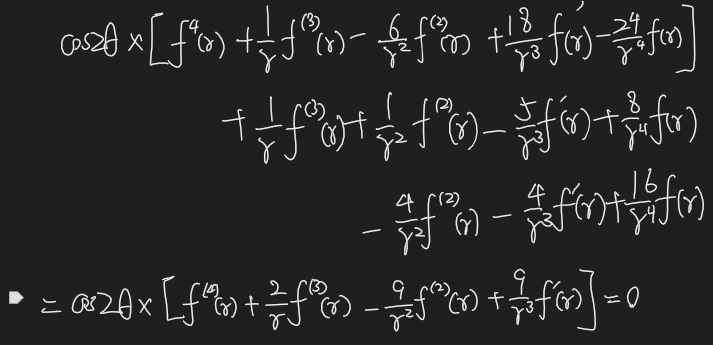 cos2θ × [f⁴(r) + 1/r f⁽³⁾(r) − 6/r² f⁽²⁾(r) + 18/r³ f′(r) − 24/r⁴ f(r)]
+ 1/r f⁽³⁾(r) + 1/r² f⁽²⁾(r) − 5/r³ f′(r) + 8/r⁴ f(r)
− 4/r² f⁽²⁾(r) − 4/r³ f′(r) + 16/r⁴ f(r)
= cos2θ × [f⁽⁴⁾(r) + 2/r f⁽³⁾(r) − 9/r² f⁽²⁾(r) + 9/r³ f′(r)] = 0